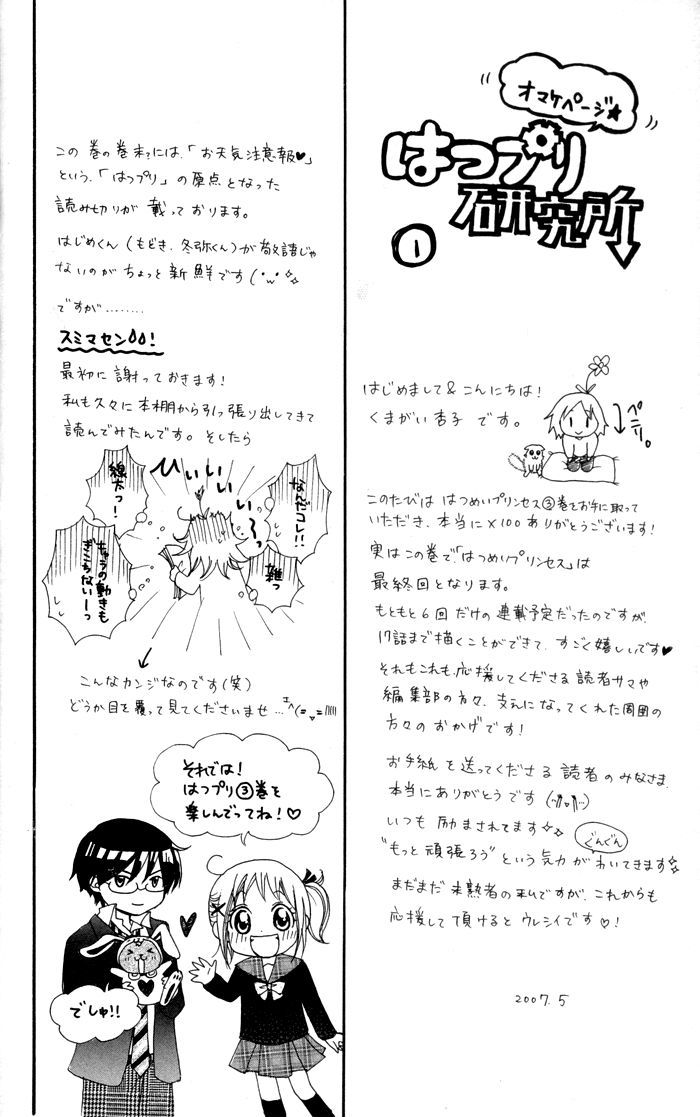 オマケページ★
はつプリ
研究所
①
はじめまして&こんにちは!
くまがい杏子です。
ペコリ。
このたびは はつめいプリンセス③巻をお手に取って
いただき、本当に×100ありがとうございます!
実はこの巻で「はつめいプリンセス」は
最終回となります。
もともと6回だけの連載予定だったのですが、
17話まで描くことができて、すごく嬉しいです♥
それもこれも応援してくださる読者サマや
編集部の方々、支えになってくれた周囲の
方々のおかげです!
お手紙を送ってくださる読者のみなさま、
本当にありがとうです
いつも励まされてます
ぐんぐん
"もっと頑張ろう"という気力がわいてきます
まだまだ未熟者の私ですが、これからも
応援して頂けるとウレシイです♡!
2007.5
この巻の巻末?には、「お天気注意報♥」
という、「はつプリ」の原点となった
読み切りが載っております。
はじめくん(もどき、冬弥くん)が敬語じゃ
ないのがちょっと新鮮です
ですが………
スミマセン!
最初に謝っておきます!
私も久々に本棚から引っ張り出してきて
読んでみたんです。そしたら
ひいいいい〜っ
なんだコレ!!
線太っ!
雑っ
キャラの動きも
ぎこちないーっ
こんなカンジなのです(笑)
どうか目を覆って見てくださいませ…
それでは!
はつプリ③巻を
楽しんでってね!♡
でしゅ!!